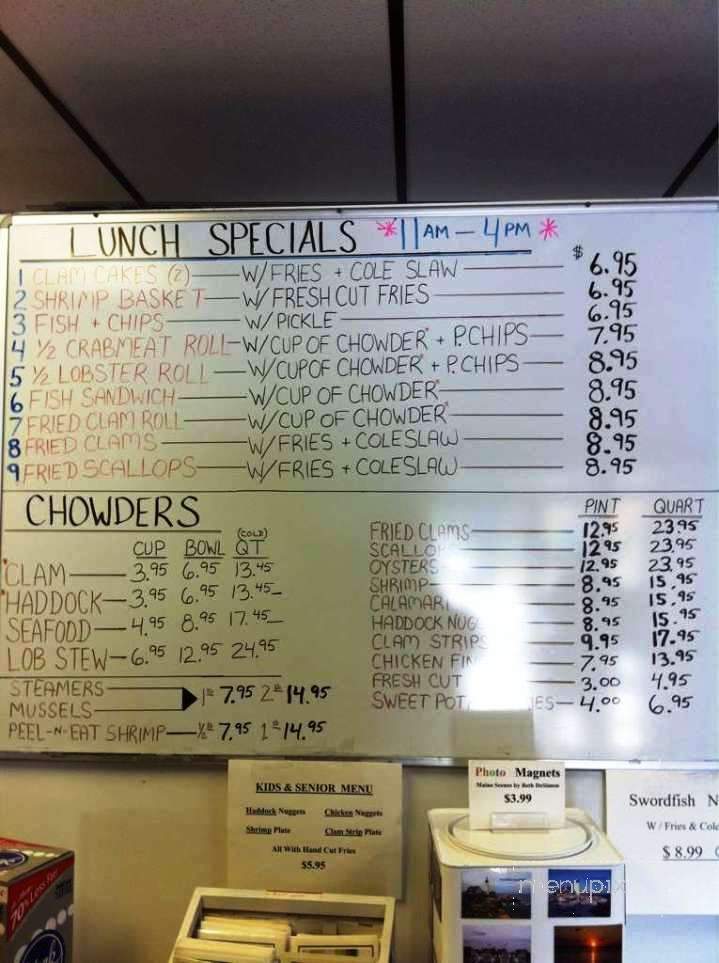 LUNCH SPECIALS *11AM - 4PM*
1 CLAM CAKES (2) W/FRIES + COLE SLAW $6.95
2 SHRIMP BASKET W/FRESH CUT FRIES 6.95
3 FISH + CHIPS W/PICKLE 6.95
4 1/2 CRABMEAT ROLL W/CUP OF CHOWDER* + P.CHIPS 7.95
5 1/2 LOBSTER ROLL W/CUP OF CHOWDER* + P.CHIPS 8.95
6 FISH SANDWICH W/CUP OF CHOWDER* 8.95
7 FRIED CLAM ROLL W/CUP OF CHOWDER* 8.95
8 FRIED CLAMS W/FRIES + COLESLAW 8.95
9 FRIED SCALLOPS W/FRIES + COLESLAW 8.95
CHOWDERS
(COLD)
CUP BOWL QT
*CLAM 3.95 6.95 13.45
*HADDOCK 3.95 6.95 13.45
SEAFOOD 4.95 8.95 17.45
LOB STEW 6.95 12.95 24.95
STEAMERS
1# 7.95 2# 14.95
MUSSELS
PEEL-N-EAT SHRIMP 1/2# 7.95 1# 14.95
PINT QUART
FRIED CLAMS 12.95 23.95
SCALLO 12.95 23.95
OYSTERS 12.95 23.95
SHRIMP 8.95 15.95
CALAMARI 8.95 15.95
HADDOCK NUG 8.95 15.95
CLAM STRIPS 9.95 17.95
CHICKEN FIN 7.95 13.95
FRESH CUT 3.00 4.95
SWEET POT ES 4.00 6.95
KIDS & SENIOR MENU
Haddock Nuggets Chicken Nuggets
Shrimp Plate Clam Strip Plate
All With Hand Cut Fries
$5.95
Photo Magnets
Maine Scenes by Beth
$3.99
Swordfish N
W / Fries & Cole
$ 8.99
70% Less Fat
menupix